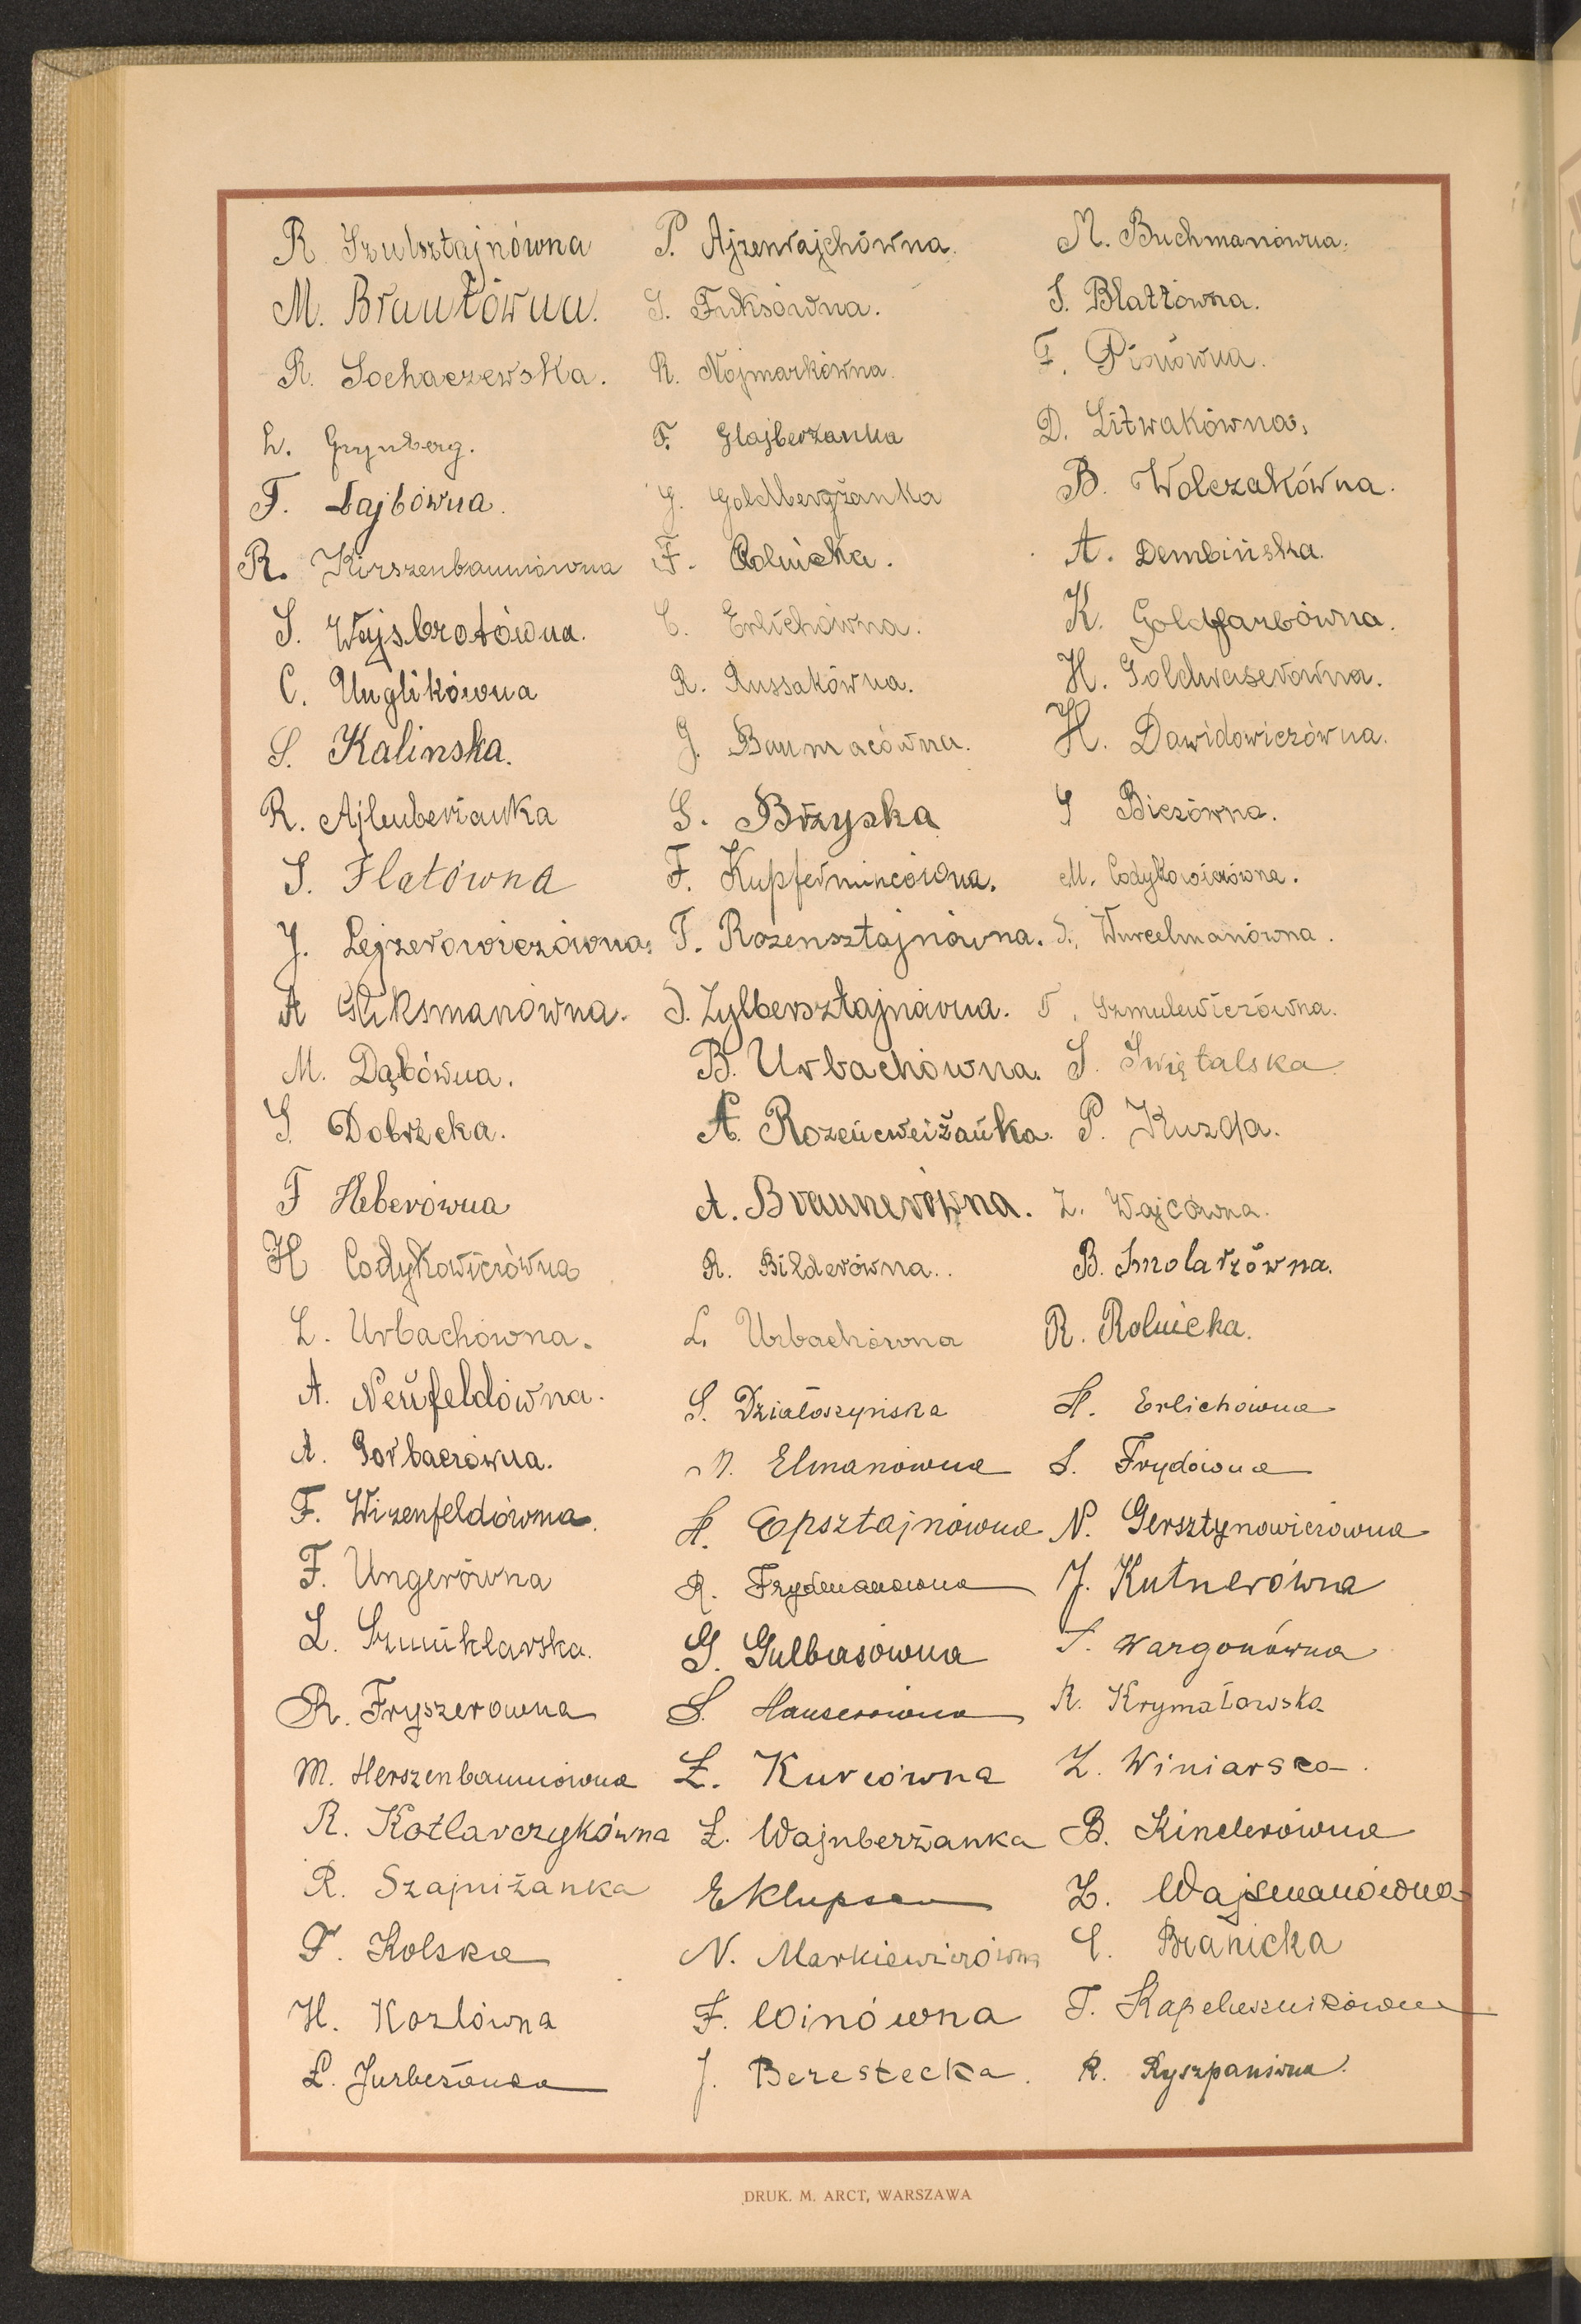 R Szulsztajnówna
M. Brautówna.
R. Sochaczewska.
L. Grynberg.
F. Lajbówna.
R. Kirszenbaumówna
S. Wajsbrotówna.
C. Unglikówna
S. Kalinska.
R. Ajlenberżanka
S. Flatówna
J. Lejzerowiczówna.
A Gliksmanówna.
M. Dąbówna.
S Dobrzcka.
F Heberówna
H Codykowiczówna
L. Urbachówna.
A. Neufeldówna.
A. Gorbaczówna.
F. Wizenfeldówna.
F. Ungerówna
L. Szmuklarska.
R. Fryszerowna
M. Herszenbaumówna
R. Kotlarczykówna
R. Szajniżanka
F. Kolska
H. Kozłówna
P. Ajzenrajchówna.
S. Fuksówna.
R. Nojmarkówna.
F. Glajberżanka
G. Goldbergżanka
F. Rolnicka.
C. Erlichówna.
R. Russakówna.
J. Baumacówna.
S. Brzyska
F. Kupfermincówna.
T. Rozensztajnówna.
S. Zylbersztajnówna.
B. Urbachówna.
A. Rozencweiżanka.
A. Braunerówna.
R. Bilderówna.
L. Urbachówna
S. Działoszyńska
M. Elmanówna
H. Epsztajnówna
R. Frydmanówna
G. Gulbasówna
S. Hauserówna
Ł. Kurcówna
Ł. Wajnberżanka
E Klupsen
N. Markiewiczówna
F. Winówna
J. Berestecka.
M. Buchmanówna.
S. Blattówna.
F. Pisiówna.
D. Litwakówna.
B. Wolczakówna.
A. Dembińska.
K. Goldfarbówna.
H. Goldwaserówna.
H. Dawidowiczówna.
S Biezówna.
M. Codykowiczówna.
S. Wurcelmanówna.
F. Szmulewiczówna.
S. Świętalska
P. Kuzda.
Z. Wajcówna.
B. Smolarzówna.
R. Rolnicka.
H. Erlichówna
S. Frydówna
N. Gersztynowiczówna
J. Kutnerówna
S. Wargonówna
R. Krymałowska
Z. Winiarska.
B. Kinderówna
Z. Wajsmanówna
C. Branicka
T. Kapelusznikówna
R. Ryszpanówna.
DRUK. M. ARCT, WARSZAWA